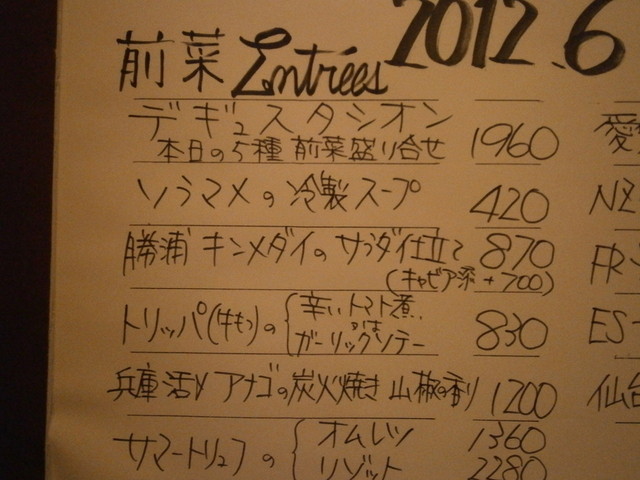 前菜 Entrées 2012.6
デギュスタシオン
本日の5種 前菜盛り合せ 1960
ソラマメの冷製スープ 420
勝浦 キンメダイの サラダ仕立て 870
(キャビア添 +700)
トリッパ(牛もつ)の { 辛いトマト煮, 830
又は
ガーリックソテー
兵庫 活〆 アナゴの炭火焼き 山椒の香り 1200
サマートリュフの { オムレツ 1360
リゾット 2280
愛
NZ
FR-
ES-
仙台